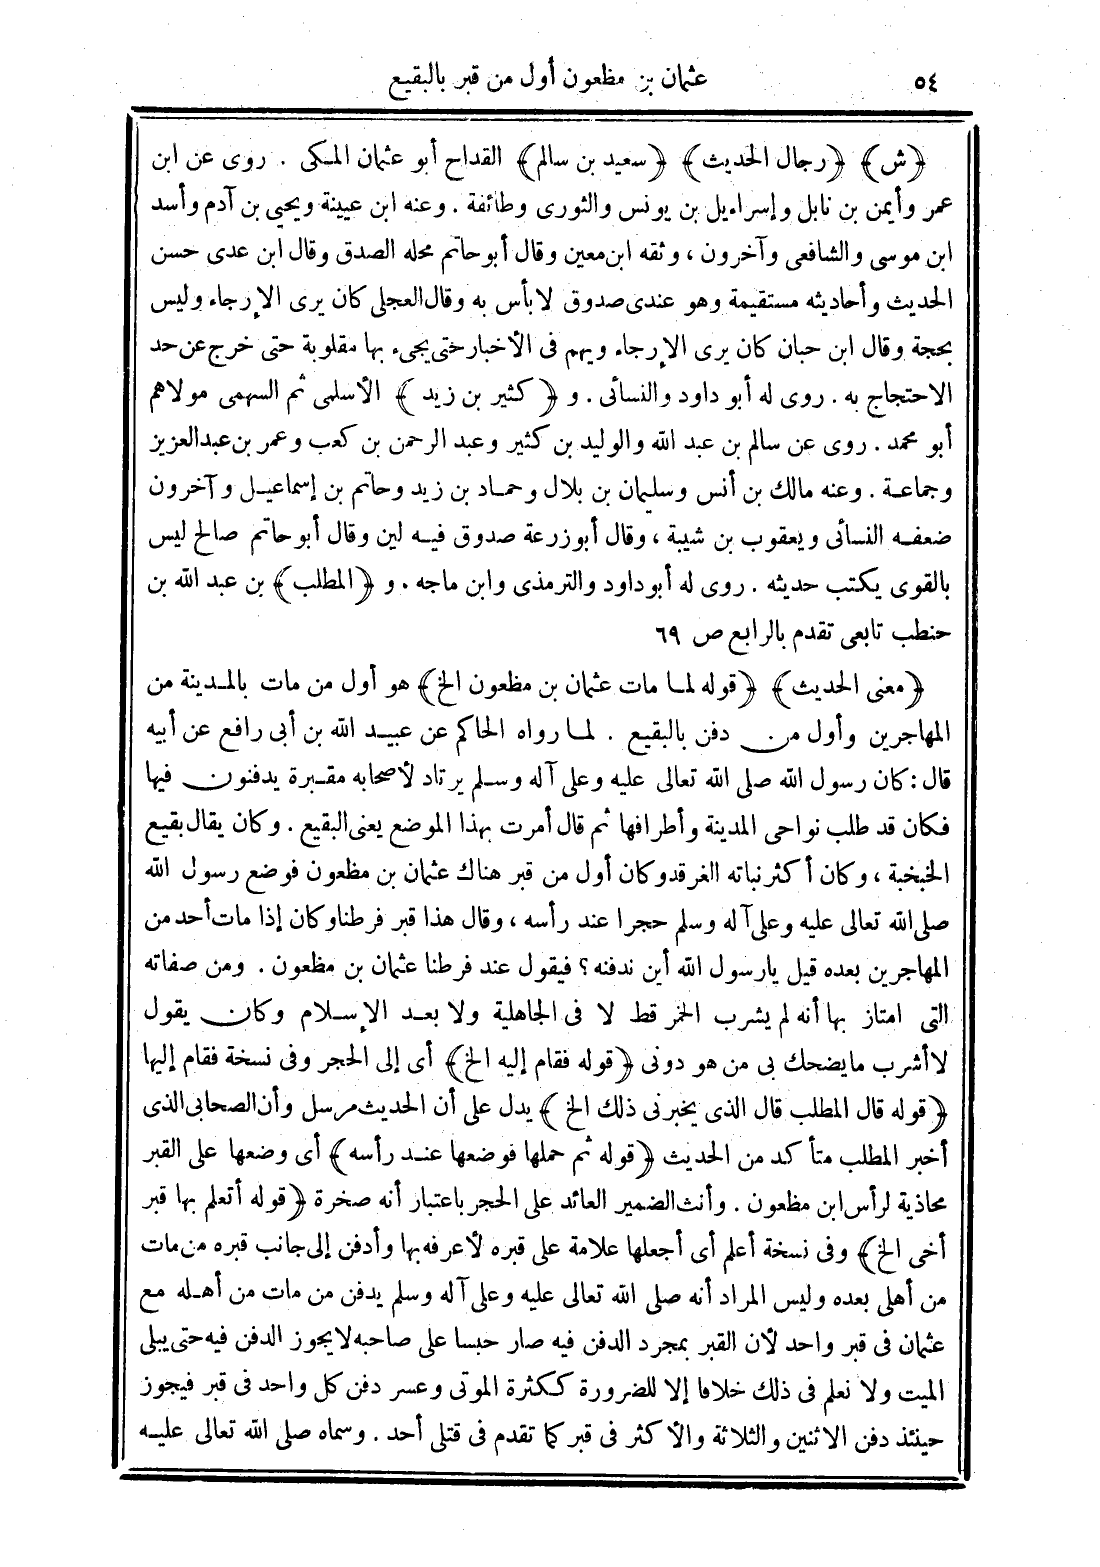 ٥٤ عثمان بن مظعون أول من قبر بالبقيع
﴿ش﴾ ﴿رجال الحديث﴾ ﴿سعيد بن سالم﴾ القداح أبو عثمان المكى . روى عن ابن
عمر وأيمن بن نابل وإسراءيل بن يونس والثورى وطائفة . وعنه ابن عيينة ويحيى بن آدم وأسد
ابن موسى والشافعى وآخرون ، وثقه ابن معين وقال أبو حاتم محله الصدق وقال ابن عدى حسن
الحديث وأحاديثه مستقيمة وهو عندى صدوق لا بأس به وقال العجلى كان يرى الإرجاء وليس
بحجة وقال ابن حبان كان يرى الإرجاء ويهم فى الأخبار حتى يجىء بها مقلوبة حتى خرج عن حد
الاحتجاج به . روى له أبو داود والنسائى . و ﴿كثير بن زيد﴾ الأسلمى ثم السهمى مولاهم
أبو محمد . روى عن سالم بن عبد الله والوليد بن كثير وعبد الرحمن بن كعب وعمر بن عبد العزيز
وجماعة . وعنه مالك بن أنس وسليمان بن بلال وحماد بن زيد وحاتم بن إسماعيل وآخرون
ضعفه النسائى ويعقوب بن شيبة ، وقال أبو زرعة صدوق فيه لين وقال أبو حاتم صالح ليس
بالقوى يكتب حديثه . روى له أبو داود والترمذى وابن ماجه . و ﴿المطلب﴾ بن عبد الله بن
حنطب تابعى تقدم بالرابع ص ٦٩
﴿معنى الحديث﴾ ﴿قوله لما مات عثمان بن مظعون الخ﴾ هو أول من مات بالمدينة من
المهاجرين وأول من دفن بالبقيع . لما رواه الحاكم عن عبيد الله بن أبى رافع عن أبيه
قال : كان رسول الله صلى الله تعالى عليه وعلى آله وسلم يرتاد لأصحابه مقبرة يدفنون فيها
فكان قد طلب نواحى المدينة وأطرافها ثم قال أمرت بهذا الموضع يعنى البقيع . وكان يقال بقيع
الخبخبة ، وكان أكثر نباته الغرقد وكان أول من قبر هناك عثمان بن مظعون فوضع رسول الله
صلى الله تعالى عليه وعلى آله وسلم حجرا عند رأسه ، وقال هذا قبر فرطنا وكان إذا مات أحد من
المهاجرين بعده قيل يارسول الله أين ندفنه ؟ فيقول عند فرطنا عثمان بن مظعون . ومن صفاته
التى امتاز بها أنه لم يشرب الخمر قط لا فى الجاهلية ولا بعد الإسلام وكان يقول
لا أشرب ما يضحك بى من هو دونى ﴿قوله فقام إليه الخ﴾ أى إلى الحجر وفى نسخة فقام إليها
﴿قوله قال المطلب قال الذى يخبرنى ذلك الخ﴾ يدل على أن الحديث مرسل وأن الصحابى الذى
أخبر المطلب متأكد من الحديث ﴿قوله ثم حملها فوضعها عند رأسه﴾ أى وضعها على القبر
محاذية لرأس ابن مظعون . وأنث الضمير العائد على الحجر باعتبار أنه صخرة ﴿قوله أتعلم بها قبر
أخى الخ﴾ وفى نسخة أعلم أى أجعلها علامة على قبره لأعرفه بها وأدفن إلى جانب قبره من مات
من أهلى بعده وليس المراد أنه صلى الله تعالى عليه وعلى آله وسلم يدفن من مات من أهله مع
عثمان فى قبر واحد لأن القبر بمجرد الدفن فيه صار حبسا على صاحبه لا يجوز الدفن فيه حتى يبلى
الميت ولا نعلم فى ذلك خلافا إلا للضرورة ككثرة الموتى وعسر دفن كل واحد فى قبر فيجوز
حينئذ دفن الاثنين والثلاثة والأكثر فى قبر كما تقدم فى قتلى أحد . وسماه صلى الله تعالى عليه